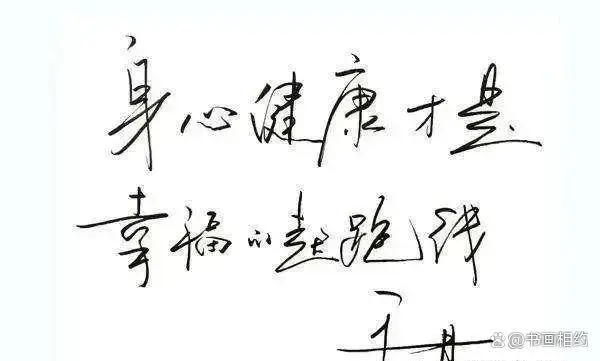 身心健康才是
幸福的起跑线
于丹
@书画相约